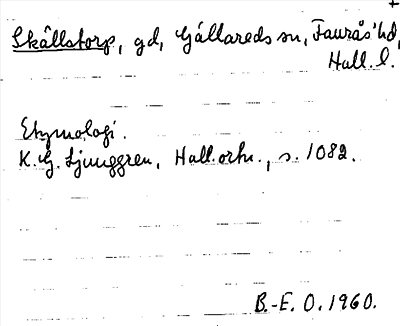 +
Skällstorp, gd, Gällareds sn, Faurås hd,
Hall. l.
Etymologi.
K. G. Ljunggren, Hall. ortn., s. 1082.
B.-E. O. 1960.